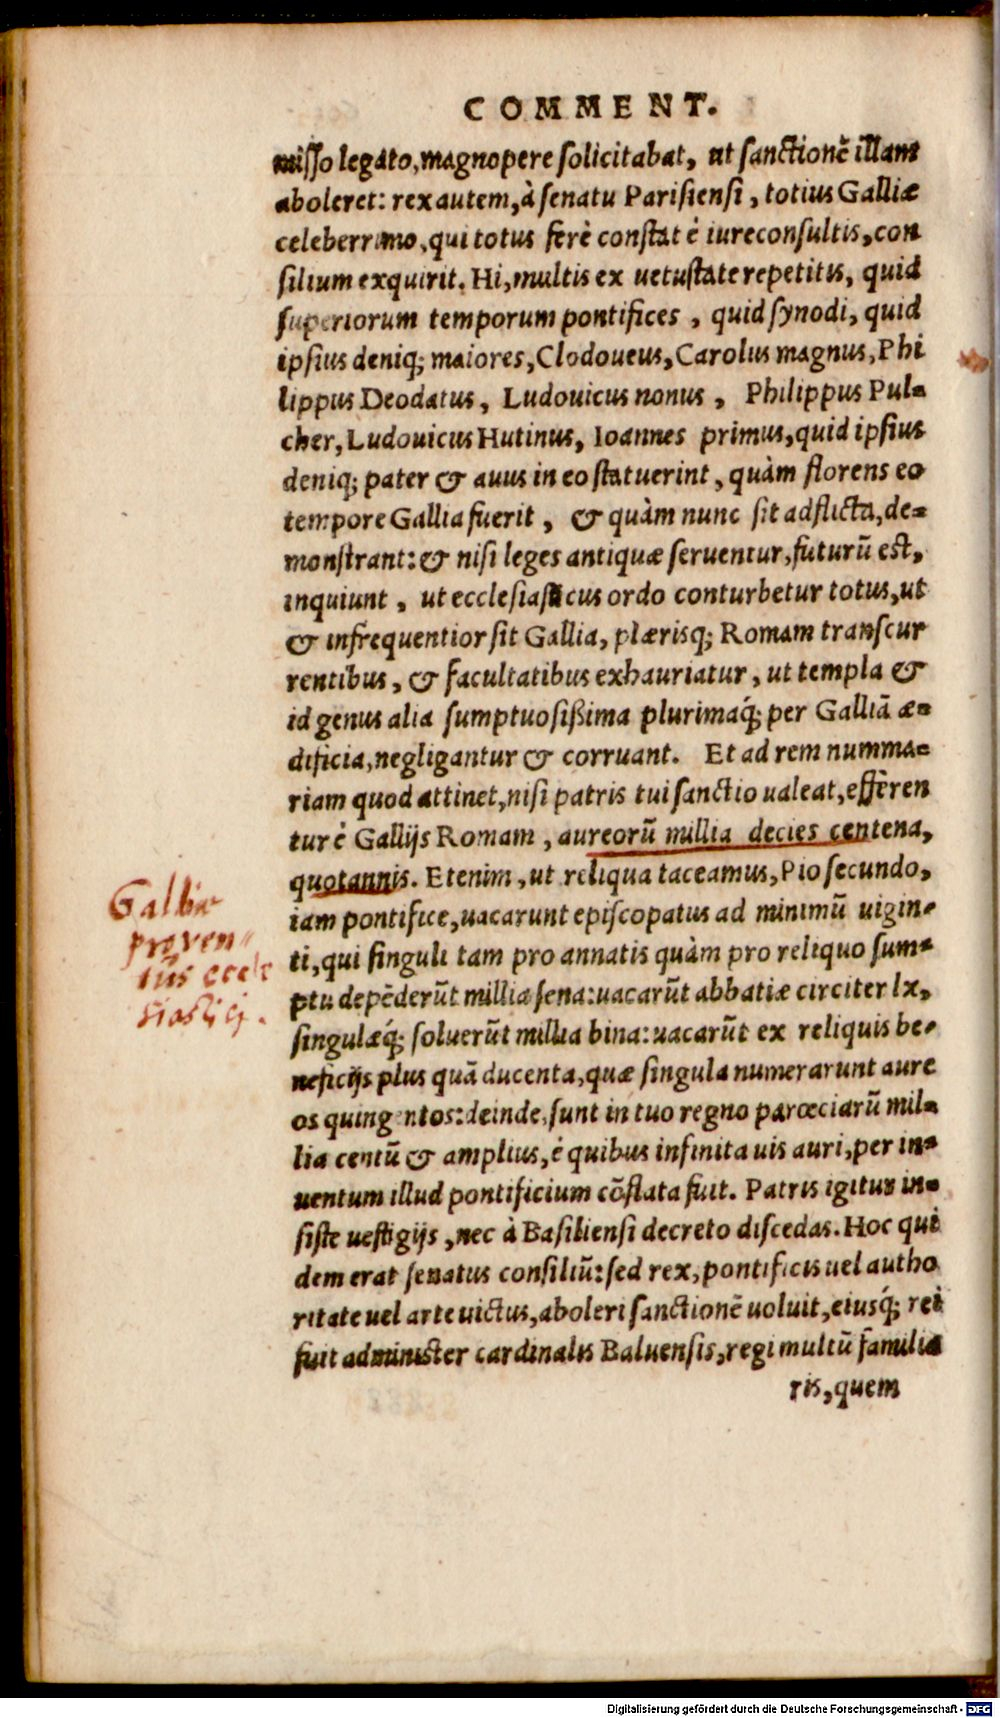 COMMENT.
misso legato, magnopere solicitabat, ut sanctionē illam
aboleret: rex autem, à senatu Parisiensi, totius Galliæ
celeberrimo, qui totus ferè constat è iureconsultis, con
silium exquirit. Hi, multis ex uetustate repetitis, quid
superiorum temporum pontifices, quid synodi, quid
ipsius deniq; maiores, Clodoueus, Carolus magnus, Phi
lippus Deodatus, Ludouicus nonus, Philippus Pul-
cher, Ludouicus Hutinus, Ioannes primus, quid ipsius
deniq; pater & auus in eo statuerint, quàm florens eo
tempore Gallia fuerit, & quàm nunc sit adflicta, de-
monstrant: & nisi leges antiquæ seruentur, futurū est,
inquiunt, ut ecclesiasticus ordo conturbetur totus, ut
& infrequentior sit Gallia, plærisq; Romam transcur
rentibus, & facultatibus exhauriatur, ut templa &
id genus alia sumptuosißima plurimaq́; per Galliā æ-
dificia, negligantur & corruant. Et ad rem numma-
riam quod attinet, nisi patris tui sanctio ualeat, efferen
tur è Gallijs Romam, aureorū millia decies centena,
quotannis. Etenim, ut reliqua taceamus, Pio secundo,
iam pontifice, uacarunt episcopatus ad minimū uigin-
ti, qui singuli tam pro annatis quàm pro reliquo sum-
ptu depēderūt millia sena: uacarūt abbatiæ circiter lx,
singulæq́; soluerūt millia bina: uacarūt ex reliquis be-
neficijs plus quā ducenta, quæ singula numerarunt aure
os quingentos: deinde, sunt in tuo regno parœciarū mil-
lia centū & amplius, è quibus infinita uis auri, per in-
uentum illud pontificium cōflata fuit. Patris igitur in-
siste uestigijs, nec à Basiliensi decreto discedas. Hoc qui
dem erat senatus consiliū: sed rex, pontificis uel autho
ritate uel arte uictus, aboleri sanctionē uoluit, eiusq́; rei
fuit administer cardinalis Baluensis, regi multū familia
ris, quem
Galliæ
proven"
tus eccle
siastici.
Digitalisierung gefördert durch die Deutsche Forschungsgemeinschaft - DFG